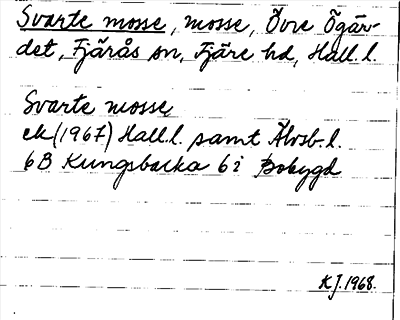 Svarte mosse, mosse, Övre Ögär-
det, Fjärås sn, Fjäre hd, Hall. l.
Svarte mosse
ek (1967) Hall.l. samt Älvsb. l.
6B Kungsbacka 6i Bobygd
KJ. 1968.